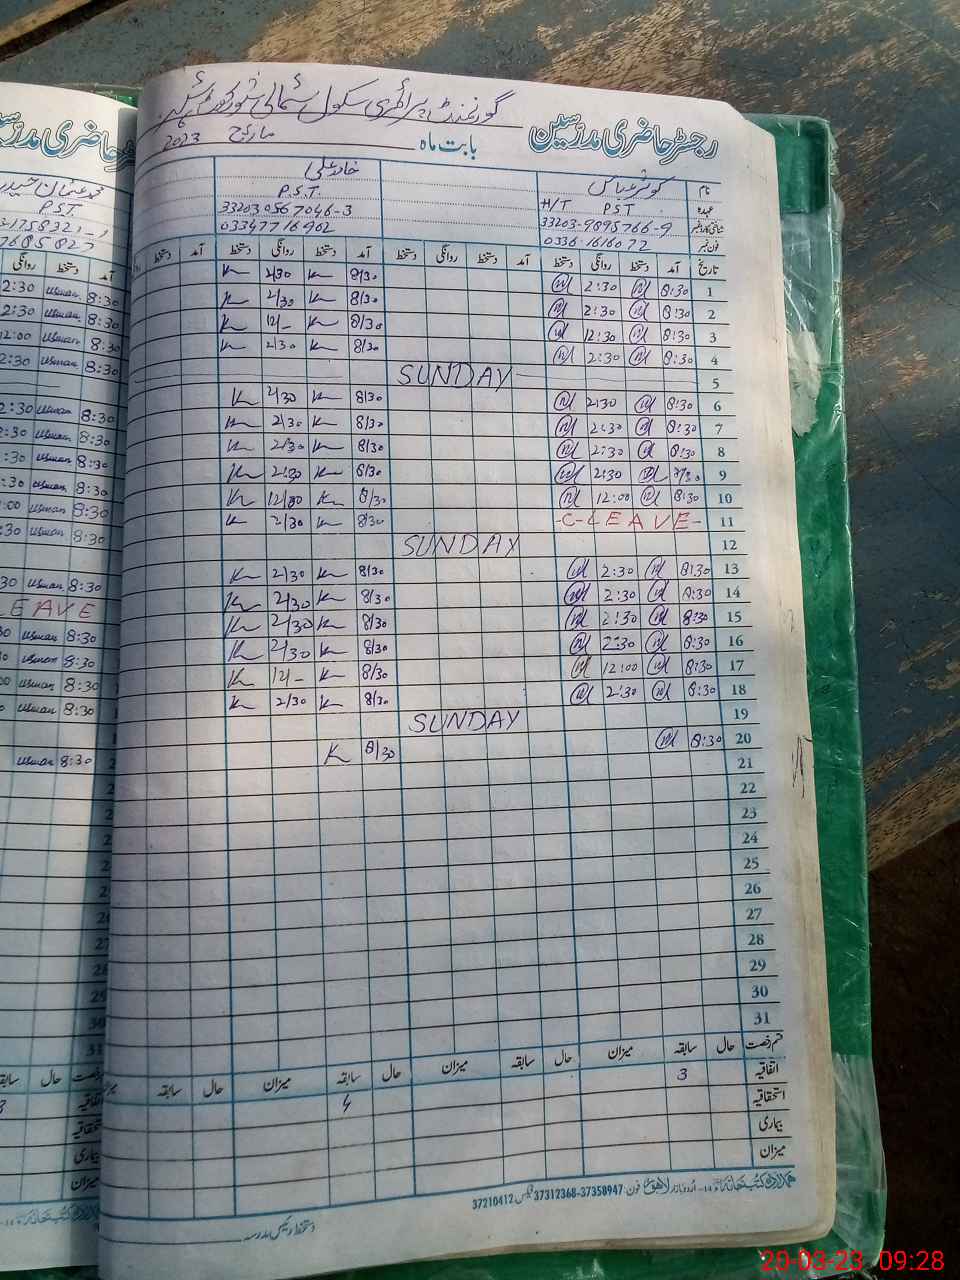 گورنمنٹ پرائمری سکول شمالی شورکوٹ
رجسٹر حاضری مدرسین بابت ماہ مارچ 2023
نام کوثر عباس خالد علی
عہدہ H/T PST P.S.T.
شناختی کارڈ نمبر 33203-9895766-9 33203 0567046-3
فون نمبر 0336-1616072 03347716902
تاریخ آمد دستخط روانگی دستخط آمد دستخط روانگی دستخط آمد دستخط روانگی دستخط آمد دستخط
1 8:30 2:30 8/30 K 2/30 K
2 8:30 2:30 8/30 K 2/30 K
3 8:30 12:30 8/30 K 12/- K
4 8:30 2:30 8/30 K 2/30 K
5 SUNDAY
6 8:30 2:30 8/30 K 2/30 K
7 8:30 2:30 8/30 K 2/30 K
8 8:30 2:30 8/30 K 2/30 K
9 2:30 8/30 K 2:30 K
10 8:30 12:00 8/30 K K
11 -C-LEAVE- 8/30 K 2/30 K
12 SUNDAY
13 8:30 2:30 8/30 K 2/30 K
14 8:30 2:30 8/30 K 2/30 K
15 8:30 2:30 8/30 K 2/30 K
16 8:30 2:30 8/30 K 2/30 K
17 8:30 12:00 8/30 K 12/- K
18 8:30 2:30 8/30 K 2/30 K
19 SUNDAY
20 8:30 8/30 K
21
22
23
24
25
26
27
28
29
30
31
قسم رخصت حال سابقہ میزان حال سابقہ میزان حال سابقہ میزان حال سابقہ
اتفاقیہ 3 4
استحقاقیہ
بیماری
میزان
اردو بازار لاہور فون: 37358947-37312368 فیکس 37210412
دستخط رئیس مدرسہ
رجسٹر حاضری مدرسین
محمد عثمان حیدر
P.S.T.
آمد دستخط روانگی
8:30 usman 2:30
8:30 usman 2:30
8:30 usman 12:00
8:30 usman 2:30
8:30 usman 2:30
8:30 usman 2:30
8:30 usman :30
8:30 usman :30
8:30 usman :00
8:30 usman :30
8:30 usman 30
LEAVE
8:30 usman
8:30 usman
8:30 usman
8:30 usman
8:30 usman
20-03-23 09:28